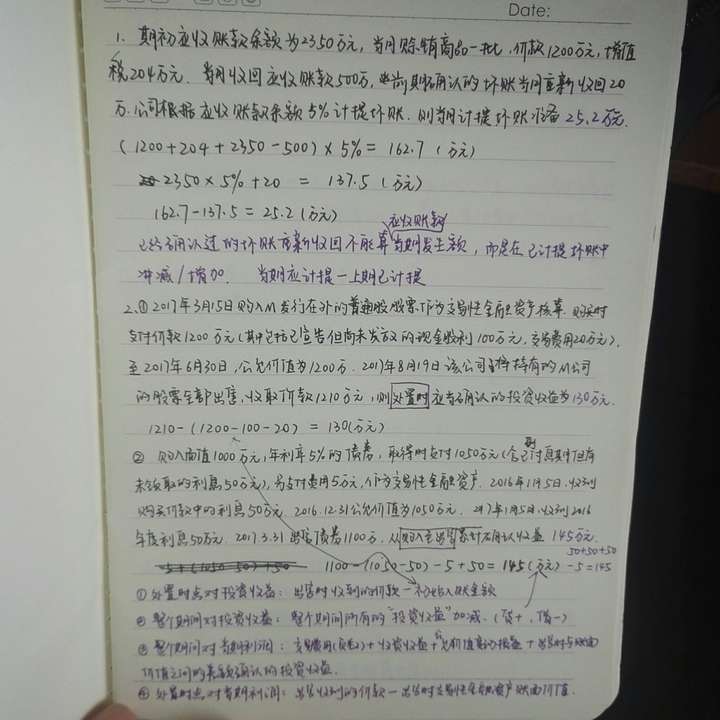 Date:
1. 期初应收账款余额为2350万元, 当月赊销商品一批, 价款1200万元, 增值
税204万元. 当月收回应收账款500万, 以前期确认的坏账当月重新收回20
万. 公司根据应收账款余额5%计提坏账. 则当月计提坏账准备25.2万元.
(1200+204+2350-500)×5%=162.7(万元)
2350×5%+20 = 137.5(万元)
162.7-137.5=25.2(万元)
应收账款
已经确认过的坏账重新收回不能算当期发生额, 而是在已计提坏账中
冲减/增加. 当期应计提-上期已计提
2.① 2017年3月15日购入M发行在外的普通股股票作为交易性金融资产核算. 购买时
支付价款1200万元(其中包括已宣告但尚未发放的现金股利100万元, 交易费用20万元),
至2017年6月30日, 公允价值为1200万. 2017年8月19日该公司将持有的M公司
的股票全部出售, 收取价款1210万元, 则处置时应当确认的投资收益为130万元.
1210-(1200-100-20) = 130(万元)
② 购入面值1000万元, 年利率5%的债券, 取得时支付1050万元(含已到付息期但尚
未领取的利息50万元), 另支付费用5万元, 作为交易性金融资产. 2016年1月5日, 收到
购买价款中的利息50万元. 2016.12.31公允价值为1050万元. 2017年1月5日, 收到2016
年度利息50万元. 2017.3.31出售债券1100万. 从购入至出售累计确认收益 145万元.
50+50+50
1100-(1050-50)-5+50=145(万元) -5=145
①处置时点对投资收益: 出售时收到的价款-初始入账金额
② 整个期间对投资收益: 整个期间所有的"投资收益"加减. (贷+, 借-)
③ 整个期间对当期利润: 交易费用(负数)+投资收益+公允价值变动损益+出售时与账面
价值之间的差额确认的投资收益.
④ 处置时点对当期利润: 出售收到的价款-出售时交易性金融资产账面价值.